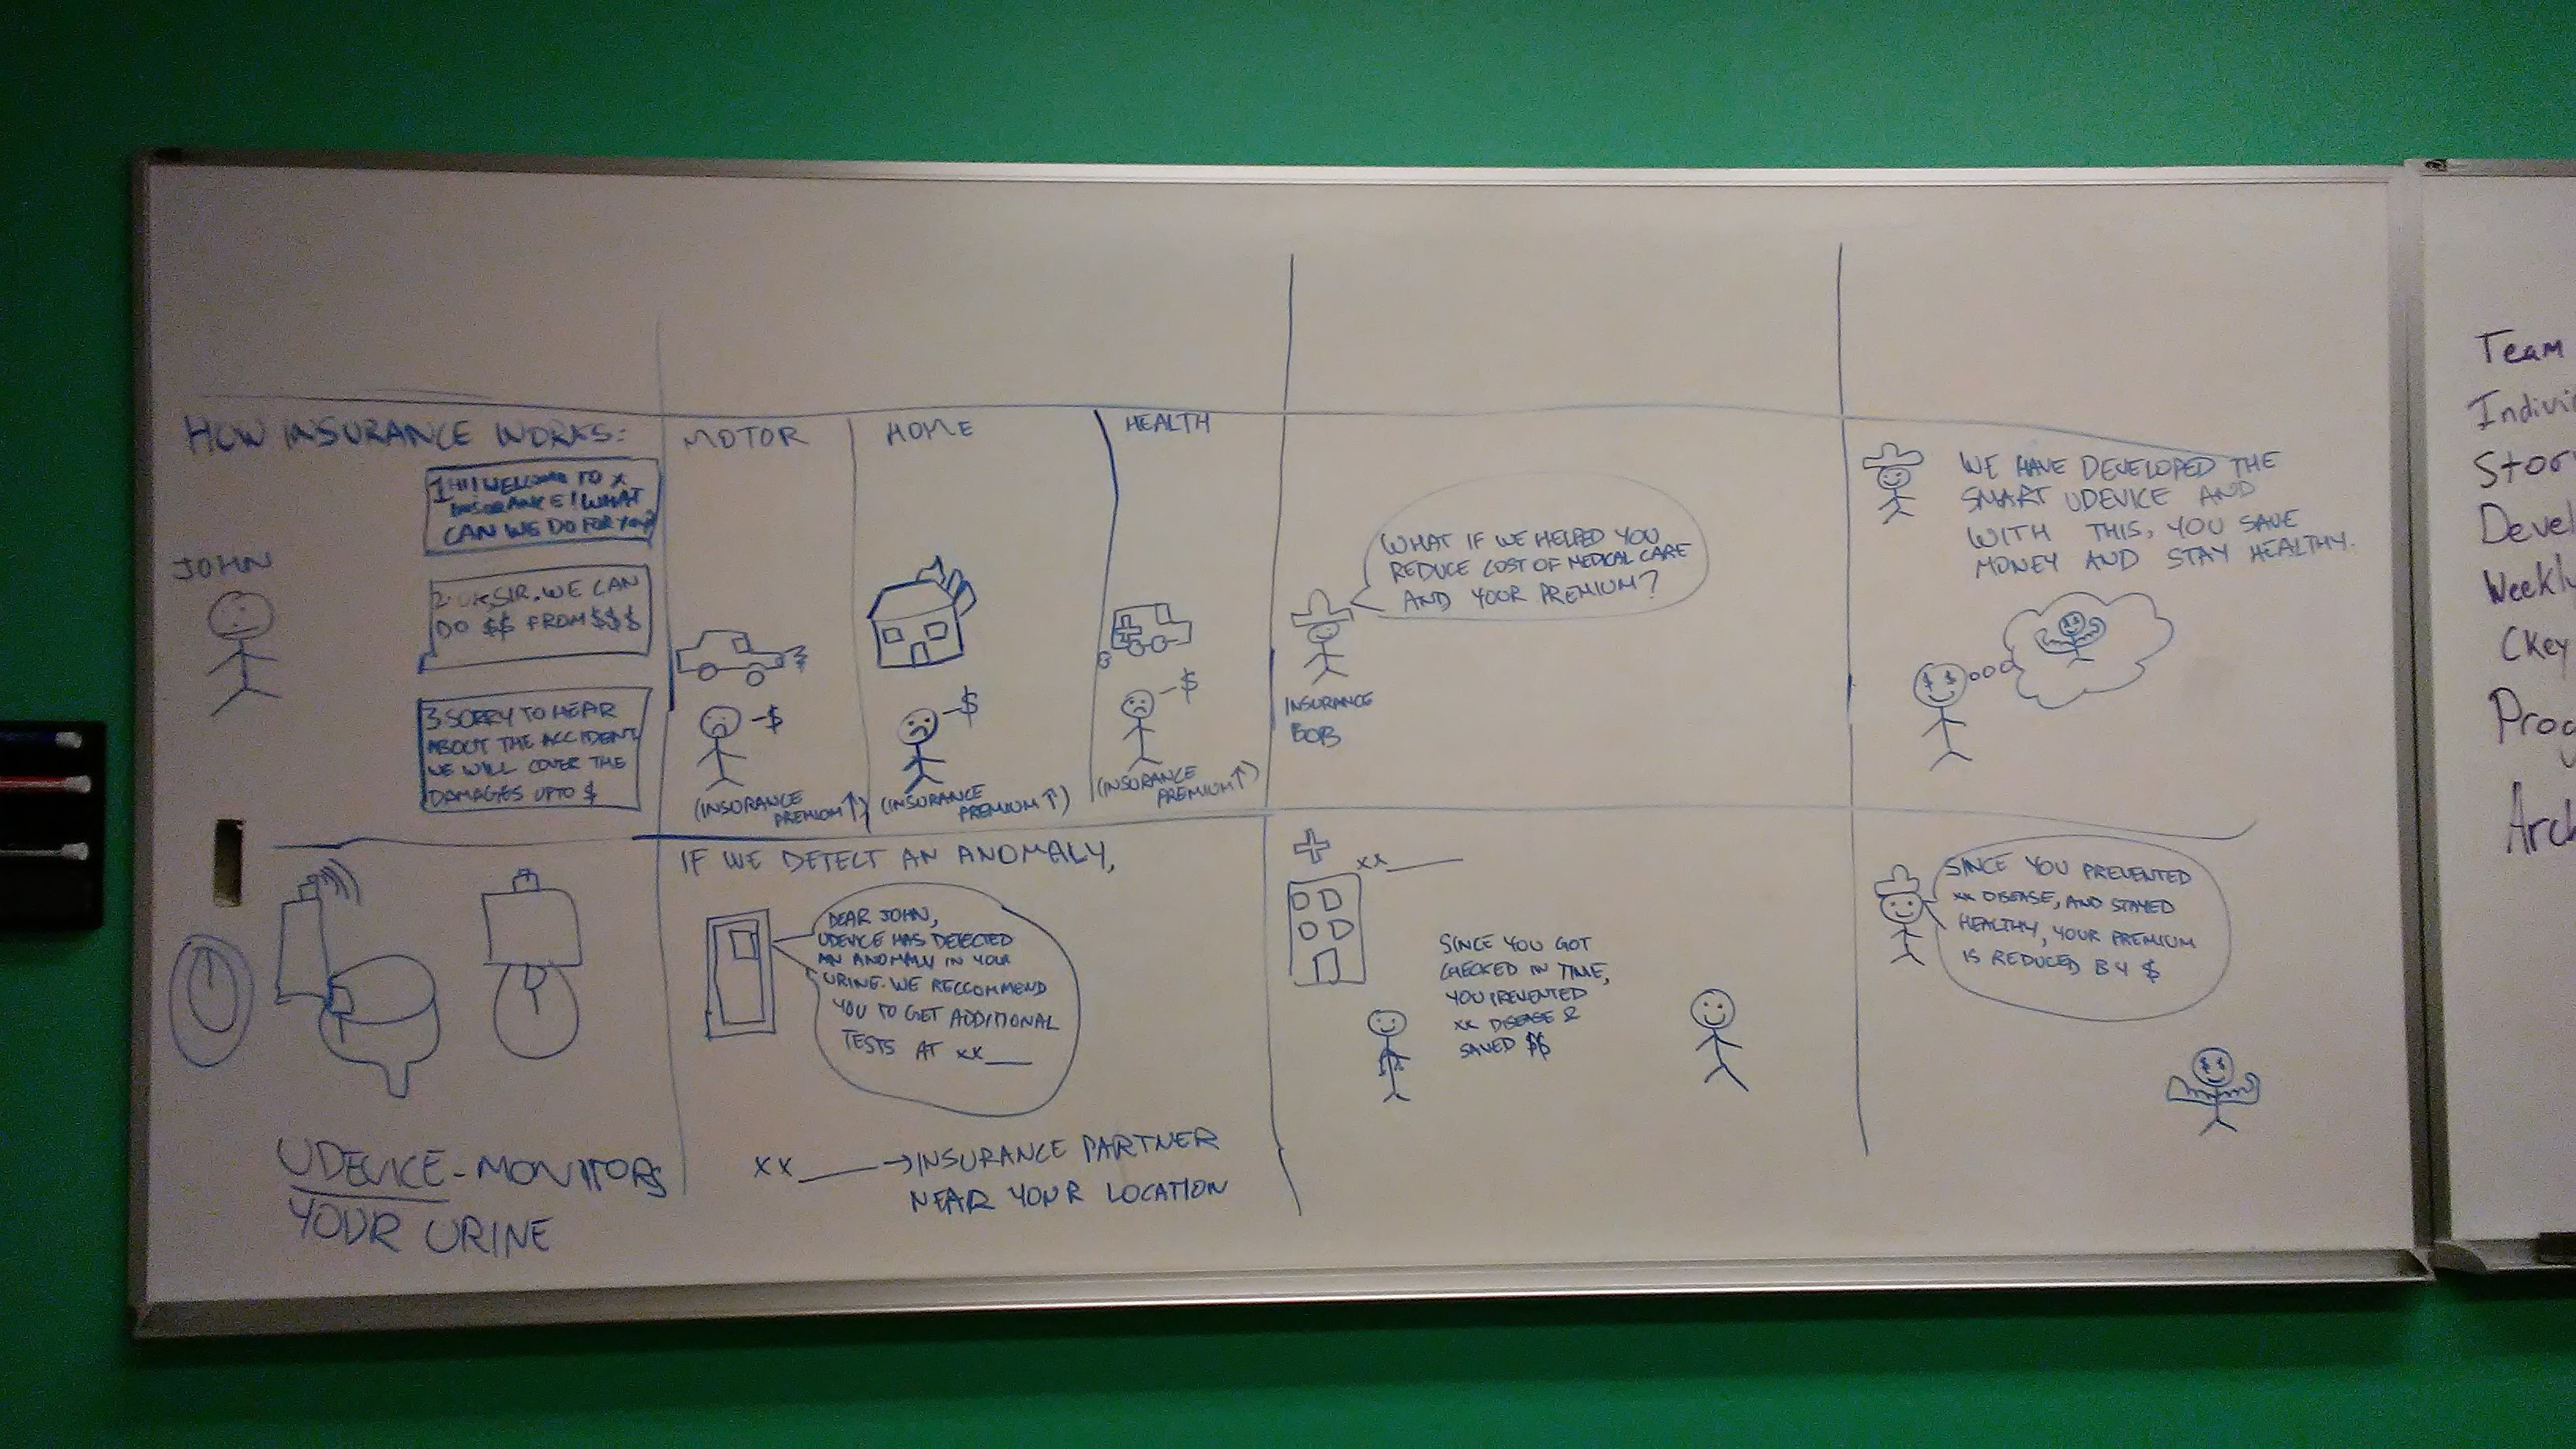 HOW INSURANCE WORKS:
JOHN
1 HI! WELCOME TO X
INSURANCE! WHAT
CAN WE DO FOR YOU?
2 OK, SIR. WE CAN
DO $$ FROM $$$
3 SORRY TO HEAR
ABOUT THE ACCIDENT
WE WILL COVER THE
DAMAGES UPTO $
MOTOR
-$
(INSURANCE
PREMIUM ↑)
HOME
-$
(INSURANCE
PREMIUM ↑)
HEALTH
-$
(INSURANCE
PREMIUM ↑)
WHAT IF WE HELPED YOU
REDUCE COST OF MEDICAL CARE
AND YOUR PREMIUM?
INSURANCE
BOB
WE HAVE DEVELOPED THE
SMART UDEVICE AND
WITH THIS, YOU SAVE
MONEY AND STAY HEALTHY.
UDEVICE - MONITORS
YOUR URINE
IF WE DETECT AN ANOMALY,
DEAR JOHN,
UDEVICE HAS DETECTED
AN ANOMALY IN YOUR
URINE. WE RECCOMMEND
YOU TO GET ADDITIONAL
TESTS AT XX___
XX____ → INSURANCE PARTNER
NEAR YOUR LOCATION
XX____
SINCE YOU GOT
CHECKED IN TIME,
YOU PREVENTED
XX DISEASE &
SAVED $$
SINCE YOU PREVENTED
XX DISEASE, AND STAYED
HEALTHY, YOUR PREMIUM
IS REDUCED BY $
Team
Stor
Devel
Weekly
Arch